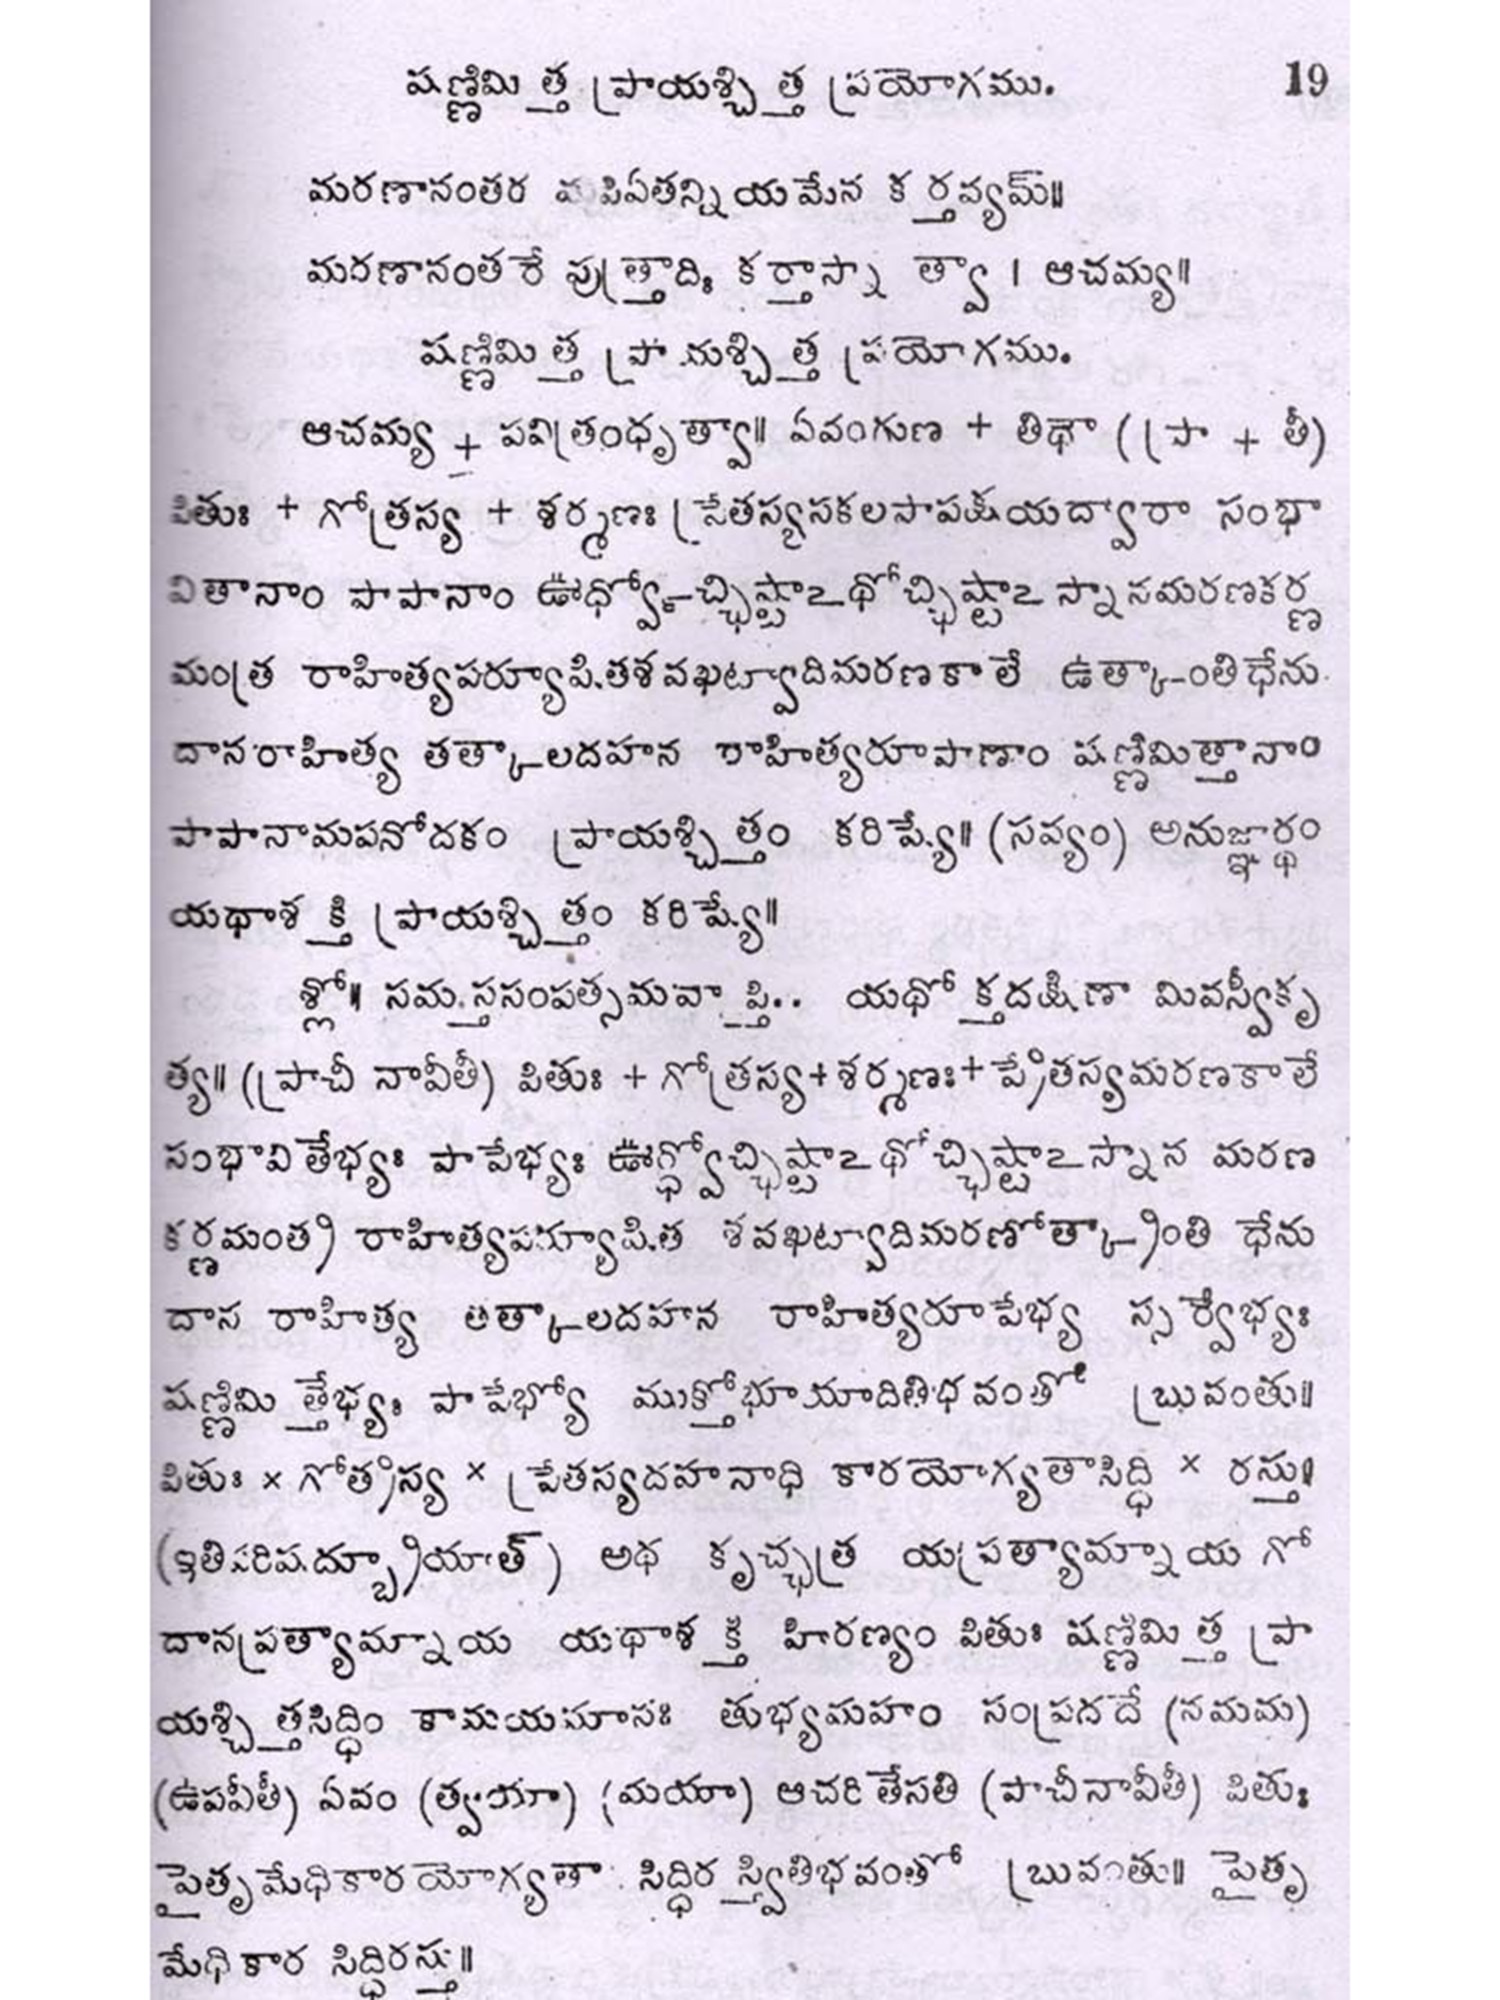 షణ్ణిమిత్త ప్రాయశ్చిత్త ప్రయోగము. 19
మరణానంతర మపిఏతన్నియమేన కర్తవ్యమ్॥
మరణానంతరే పుత్త్రాదిః కర్తాస్నాత్వా । ఆచమ్య॥
షణ్ణిమిత్త ప్రాయశ్చిత్త ప్రయోగము.
ఆచమ్య + పవిత్రంధృత్వా॥ ఏవంగుణ + తిథౌ (ప్రా + తీ)
పితుః + గోత్రస్య + శర్మణః ప్రేతస్యసకలసాపక్షయద్వారా సంభా
వితానాం పాపానాం ఊర్ధ్వోచ్ఛిష్టాఽథోచ్ఛిష్టాఽ స్నానమరణకర్ణ
మంత్ర రాహిత్యపర్యూషితశవఖట్వాదిమరణకాలే ఉత్క్రాంతిధేను
దానరాహిత్య తత్కాలదహన రాహిత్యరూపాణాం షణ్ణిమిత్తానాం
పాపానామపనోదకం ప్రాయశ్చిత్తం కరిష్యే॥ (సవ్యం) అనుజ్ఞార్థం
యథాశక్తి ప్రాయశ్చిత్తం కరిష్యే॥
శ్లో॥ సమస్తసంపత్సమవాప్తి.. యథోక్తదక్షిణా మివస్వీకృ
త్య॥ (ప్రాచీనావీతీ) పితుః + గోత్రస్య+శర్మణః+ ప్రేతస్యమరణకాలే
సంభావితేభ్యః పాపేభ్యః ఊర్ధ్వోచ్ఛిష్టాఽథోచ్ఛిష్టాఽస్నాన మరణ
కర్ణమంత్ర రాహిత్యపర్యూషిత శవఖట్వాదిమరణోత్క్రాంతి ధేను
దాన రాహిత్య తత్కాలదహన రాహిత్యరూపేభ్య స్సర్వేభ్యః
షణ్ణిమిత్తేభ్యః పాపేభ్యో ముక్తోభూయాదితిభవంతో బ్రువంతు॥
పితుః × గోత్రస్య × ప్రేతస్యదహనాధి కారయోగ్యతాసిద్ధి × రస్తు॥
(ఇతిపరిషద్బ్రూయాత్) అథ కృచ్ఛత్ర యప్రత్యామ్నాయ గో
దానప్రత్యామ్నాయ యథాశక్తి హిరణ్యం పితుః షణ్ణిమిత్త ప్రా
యశ్చిత్తసిద్ధిం కామయమానః తుభ్యమహం సంప్రదదే (నమమ)
(ఉపవీతీ) ఏవం (త్వయా) (మయా) ఆచరితేసతి (పాచీనావీతీ) పితుః
పైతృమేధికారయోగ్యతా సిద్ధిరస్త్వితిభవంతో బ్రువంతు॥ పైతృ
మేధికార సిద్ధిరస్తు॥